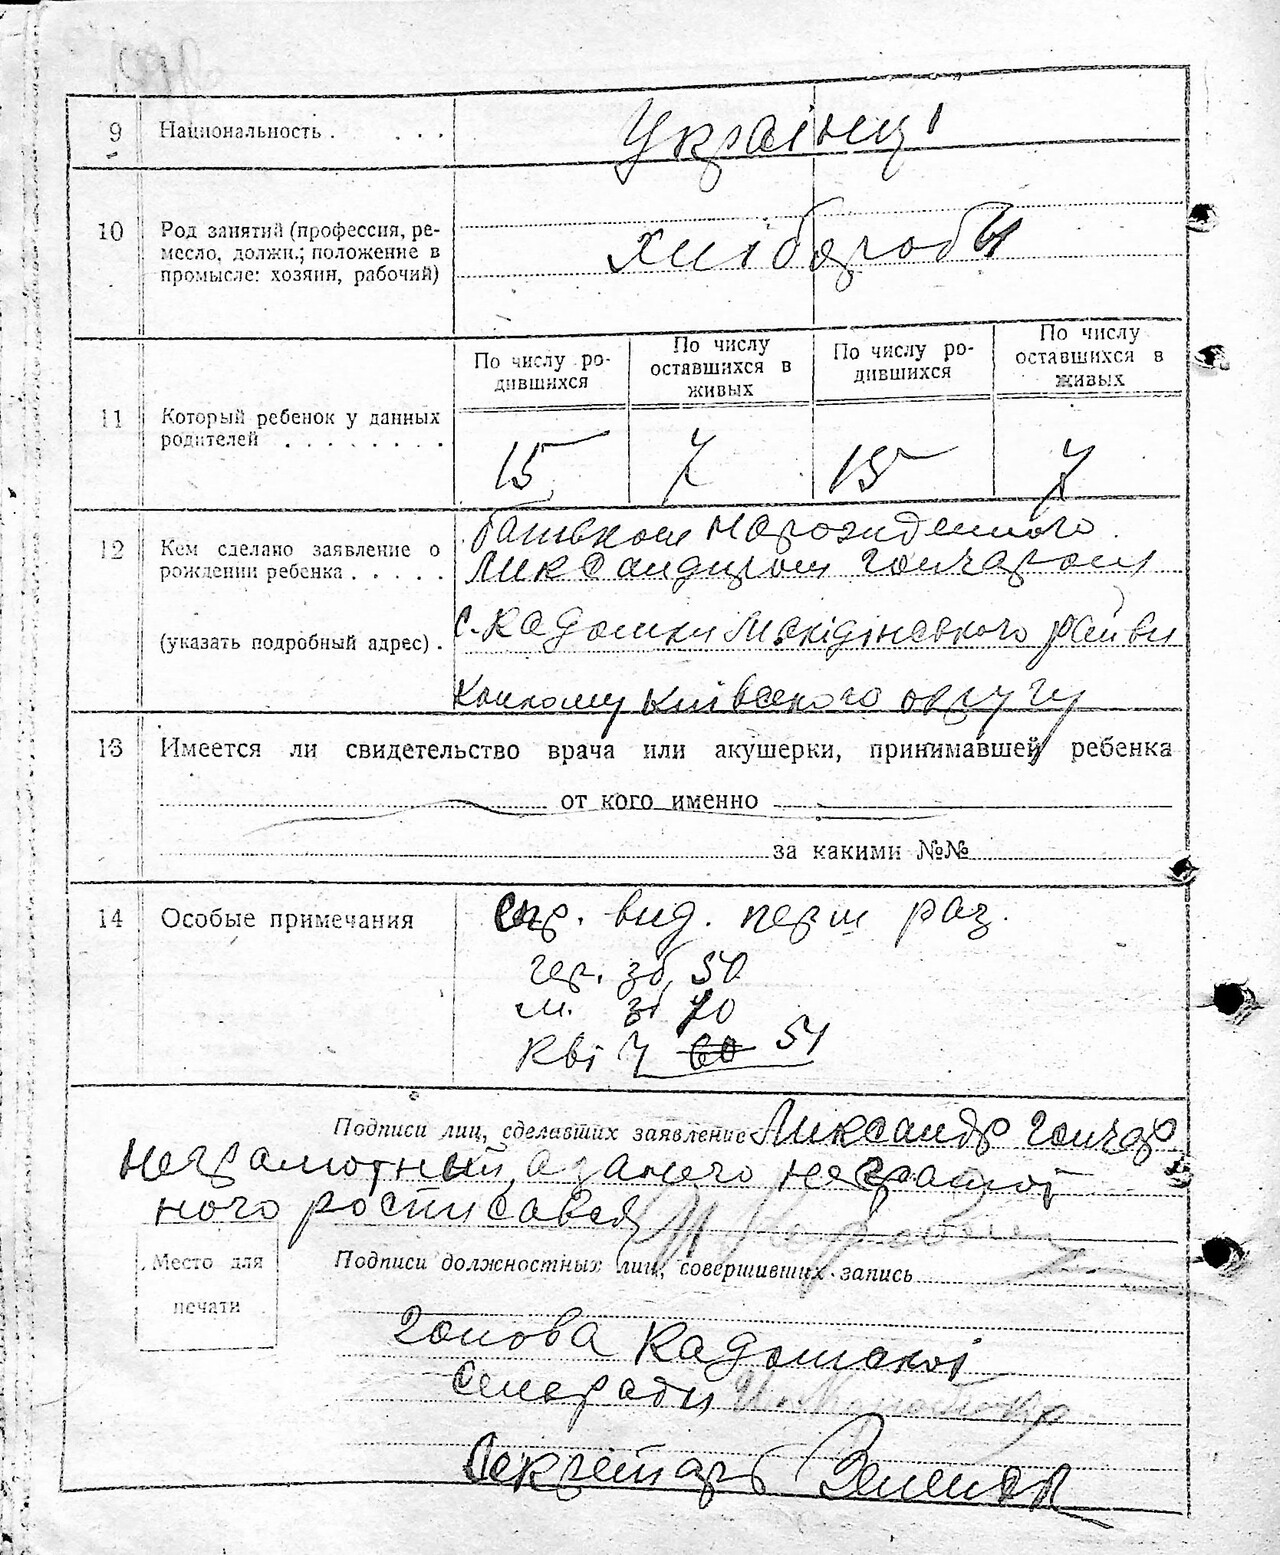 9 Национальность . . . . Українці
10 Род занятий (профессия, ре-
месло, должн.; положение в
промысле: хозяин, рабочий)
хліборобы
По числу ро-
дившихся
По числу
оставшихся в
живых
По числу ро-
дившихся
По числу
оставшихся в
живых
11 Который ребенок у данных
родителей . . . . . . . .
15 7 15 7
12 Кем сделано заявление о
рождении ребенка . . . . .
(указать подробный адрес) .
батьком нарожденного
Ликсандром Гончаром
с. Кадомки
Київского округу
13 Имеется ли свидетельство врача или акушерки, принимавшей ребенка
от кого именно
за какими №№
14 Особые примечания
вид. перш раз.
гер. зб. 50
м. зб 70
Кві 60 51
Подписи лиц, сделавших заявление Ликсандр Гончар
Неграмотный, а за него неграмот
ного росписався
Место для
печати
Подписи должностных лиц, совершивших запись
Голова Кадомскої
Сельради
Секретарь